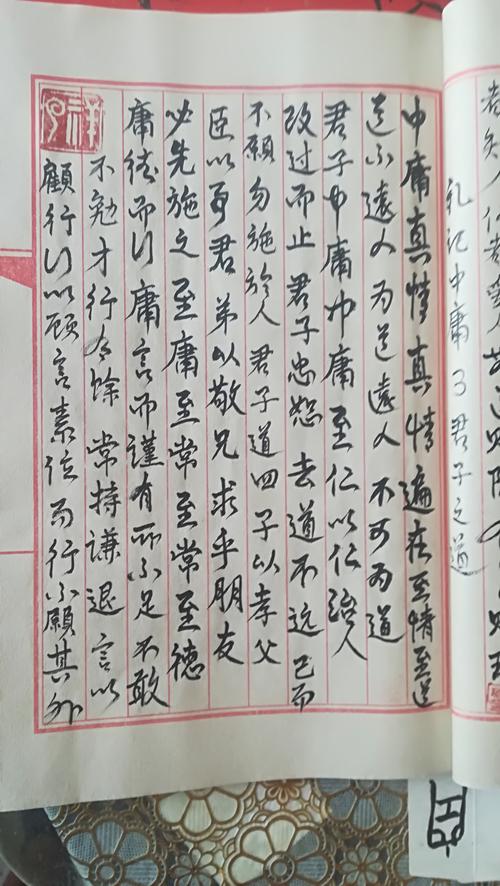 老矣人仁者
礼记中庸了君子之道
中庸真情真情遍在至情至道
道不远人为道远人不可为道
君子中庸中庸至仁以仁治人
改过而止君子忠恕去道不远已而
不愿勿施於人君子道四子以孝父
臣以事君弟以敬兄求乎朋友
必先施之至庸至常至常至德
庸德而行庸言而谨有所不足不敢
不勉才行有馀常持谦退言以
顧行行以顾言素位而行不願其外